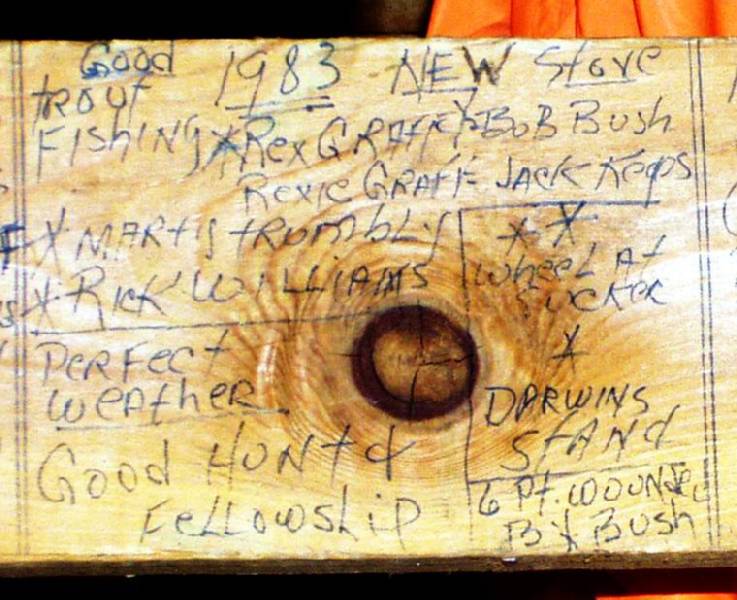 Good 1983 NEW Stove
trout
FISHING * Rex GRAFF * BOB Bush
Rexie GRAFF JACK Keops
X MARTIS tRUMBLY
X RICK WILLIAMS
X X
wheel At
sucker
X
DARWINS
StANd
PERFect
weather
Good HUNt &
FeLLOWSHIP
6 Pt. WOUNded
By Bush